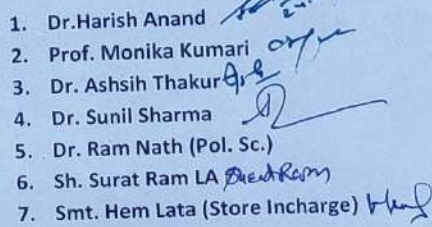 1. Dr.Harish Anand
2. Prof. Monika Kumari
3. Dr. Ashsih Thakur
4. Dr. Sunil Sharma
5. Dr. Ram Nath (Pol. Sc.)
6. Sh. Surat Ram LA Surat Ram
7. Smt. Hem Lata (Store Incharge)